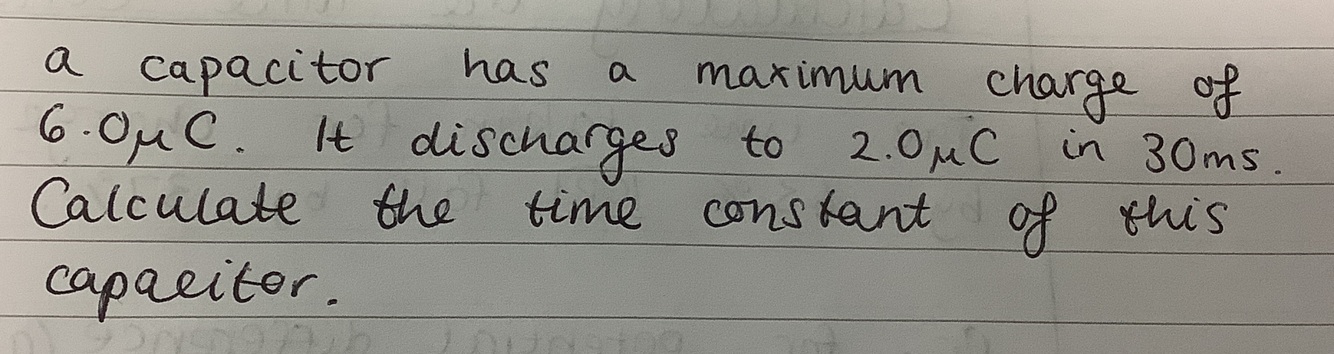 a capacitor has a maximum charge of
6.0μC. It discharges to 2.0μC in 30ms.
Calculate the time constant of this
capacitor.